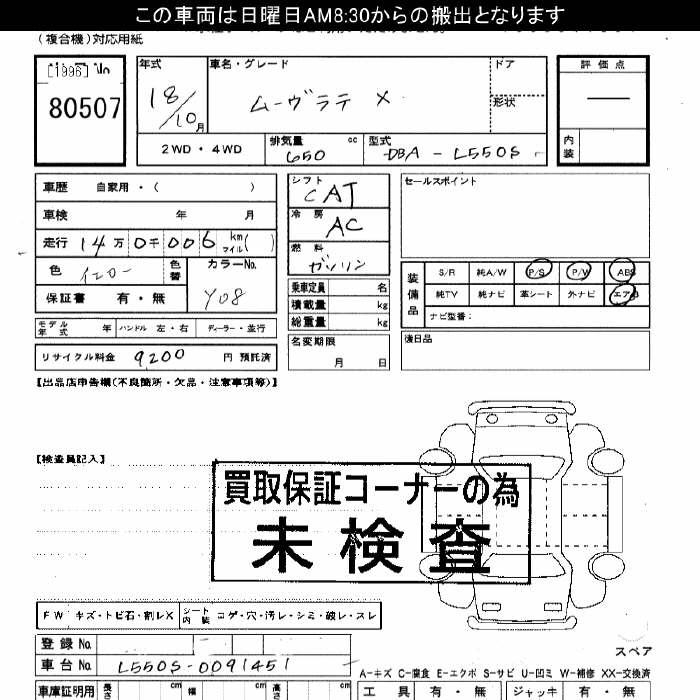 この車両は日曜日AM8:30からの搬出となります
(複合機)対応用紙
[1996] No
80507
年式
18/10月
車名・グレード
ムーヴラテ X
ドア
形状
評価点
内装
2WD・4WD
排気量
650 cc
型式
DBA-L550S
車歴 自家用・( )
車検 年 月
走行 14万 0千 006 km マイル( )
色 イエロー
色替
カラーNo.
Y08
保証書 有・無
モデル年式 年 ハンドル 左・右 ディーラー・並行
リサイクル料金 9200 円 預託済
シフト
CAT
冷房
AC
燃料
ガソリン
乗車定員 名
積載量 kg
総重量 kg
名変期限
月 日
セールスポイント
装備品
S/R 純A/W P/S P/W ABS
純TV 純ナビ 革シート 外ナビ エアB
ナビ型番:
後日品
【出品店申告欄(不良箇所・欠品・注意事項等)】
【検査員記入】
買取保証コーナーの為
未検査
FW キズ・トビ石・割レX
シート内装 コゲ・穴・汚レ・シミ・破レ・スレ
登録No.
車台No. L550S-0091451
車庫証明用 長さ cm 幅 cm 高さ cm
スペア
A-キズ C-腐食 E-エクボ S-サビ U-凹ミ W-補修 XX-交換済
工具 有・無 ジャッキ 有・無